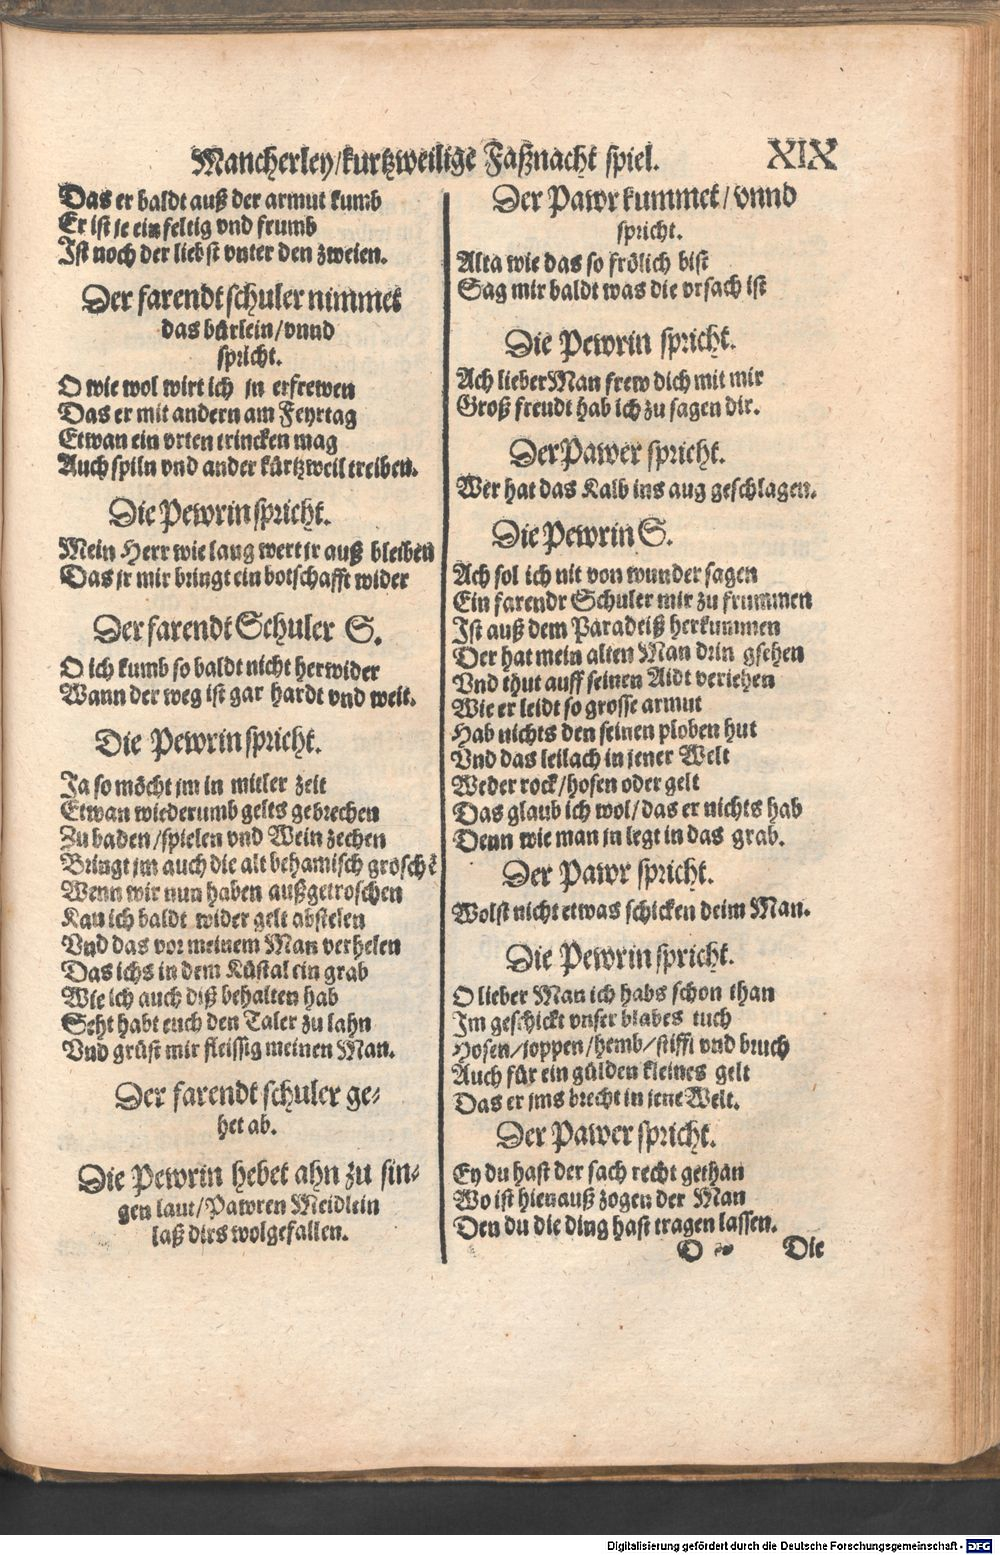 Mancherley/kurtzweilige Faßnacht spiel. XIX
Das er baldt auß der armut kumb
Er ist je einfeltig vnd frumb
Ist noch der liebst vnter den zweien.
Der farendt schuler nimmet
das bürlein/vnnd
spricht.
O wie wol wirt ich jn erfrewen
Das er mit andern am Feyrtag
Etwan ein vrten trincken mag
Auch spiln vnd ander kürtzweil treiben.
Die Pewrin spricht.
Mein Herr wie lang wert jr auß bleiben
Das jr mir bringt ein botschafft wider
Der farendt Schuler S.
O ich kumb so baldt nicht herwider
Wann der weg ist gar hardt vnd weit.
Die Pewrin spricht.
Ja so möcht jm in mitler zeit
Etwan wiederumb gelts gebrechen
Zu baden/spielen vnd Wein zechen
Bringt jm auch die alt behamisch groschē
Wenn wir nun haben außgetroschen
Kan ich baldt wider gelt abstelen
Vnd das vor meinem Man verhelen
Das ichs in dem Küstal ein grab
Wie ich auch diß behalten hab
Seht habt euch den Taler zu lahn
Vnd grüst mir fleissig meinen Man.
Der farendt schuler ge-
het ab.
Die Pewrin hebet ahn zu sin-
gen laut/Pawren Meidlein
laß dirs wolgefallen.
Der Pawr kummet/vnnd
spricht.
Alta wie das so frölich bist
Sag mir baldt was die vrsach ist
Die Pewrin spricht.
Ach lieber Man frew dich mit mir
Groß freudt hab ich zu sagen dir.
Der Pawer spricht.
Wer hat das Kalb ins aug geschlagen.
Die Pewrin S.
Ach sol ich nit von wunder sagen
Ein farendr Schuler mir zu frummen
Ist auß dem Paradeiß herkummen
Der hat mein alten Man drin gsehen
Vnd thut auff seinen Aidt veriehen
Wie er leidt so grosse armut
Hab nichts den seinen ploben hut
Vnd das leilach in jener Welt
Weder rock/hosen oder gelt
Das glaub ich wol/das er nichts hab
Denn wie man jn legt in das grab.
Der Pawr spricht.
Wolst nicht etwas schicken deim Man.
Die Pewrin spricht.
O lieber Man ich habs schon than
Im geschickt vnser blabes tuch
Hosen/joppen/hemb/stiffl vnd bruch
Auch für ein gülden kleines gelt
Das er jms brecht in jene Welt.
Der Pawer spricht.
Ey du hast der sach recht gethan
Wo ist hienauß zogen der Man
Den du die ding hast tragen lassen.
D Die
Digitalisierung gefördert durch die Deutsche Forschungsgemeinschaft - DFG